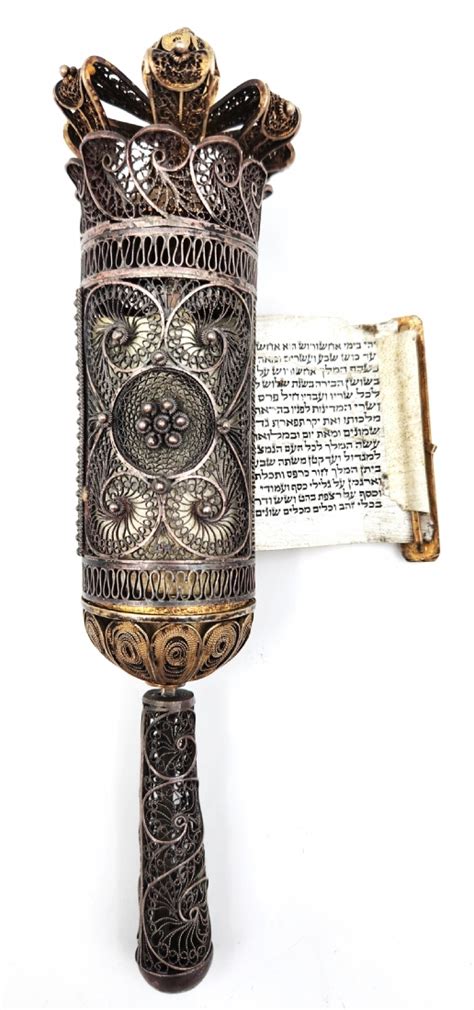 יהי בימי אחשורוש הוא
עד כוש שבע ועשרים ומאה
כשבת המלך אחשורוש על
בשושן הבירה בשנת שלוש
לכל שריו ועבדיו חיל פרס
ושרי המדינות לפניו בהראת
מלכותו ואת יקר תפארת
שמונים ומאת יום ובמלוא
עשה המלך לכל העם הנמצ
למגדול ועד קטן משתה שבע
ביתן המלך חור כרפס ותכלת
וארגמן על גלילי כסף ועמודי
וכסף על רצפת בהט ושש ודר
בכלי זהב וכלים מכלים שונים